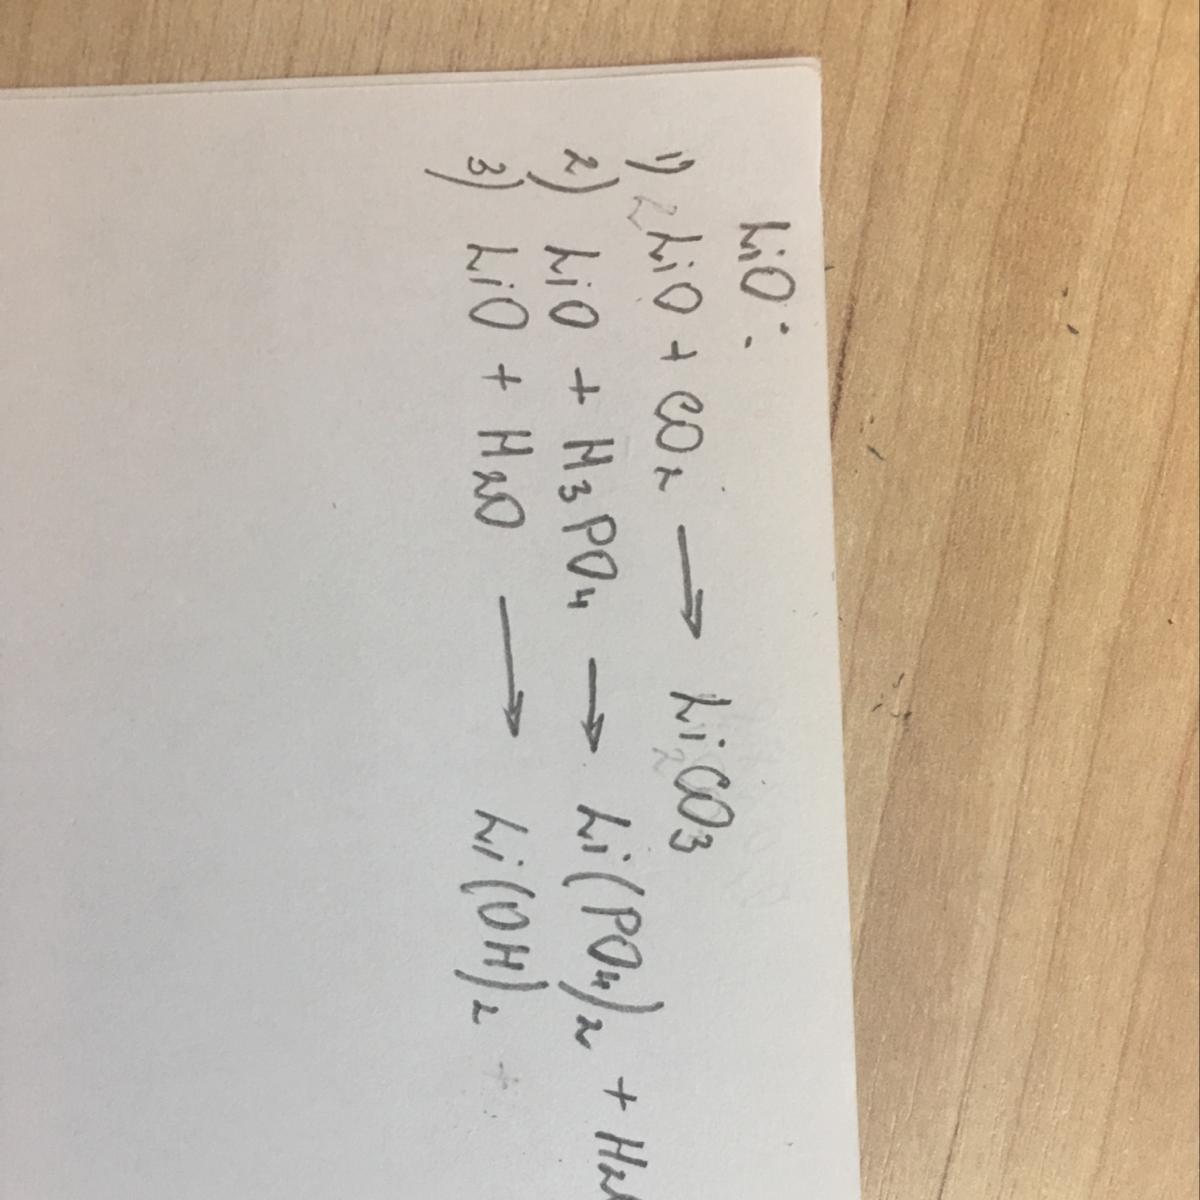 LiO:
1) 2LiO + CO2 → Li2CO3
2) LiO + H3PO4 → Li(PO4)2 + H2
3) LiO + H2O → Li(OH)2 +